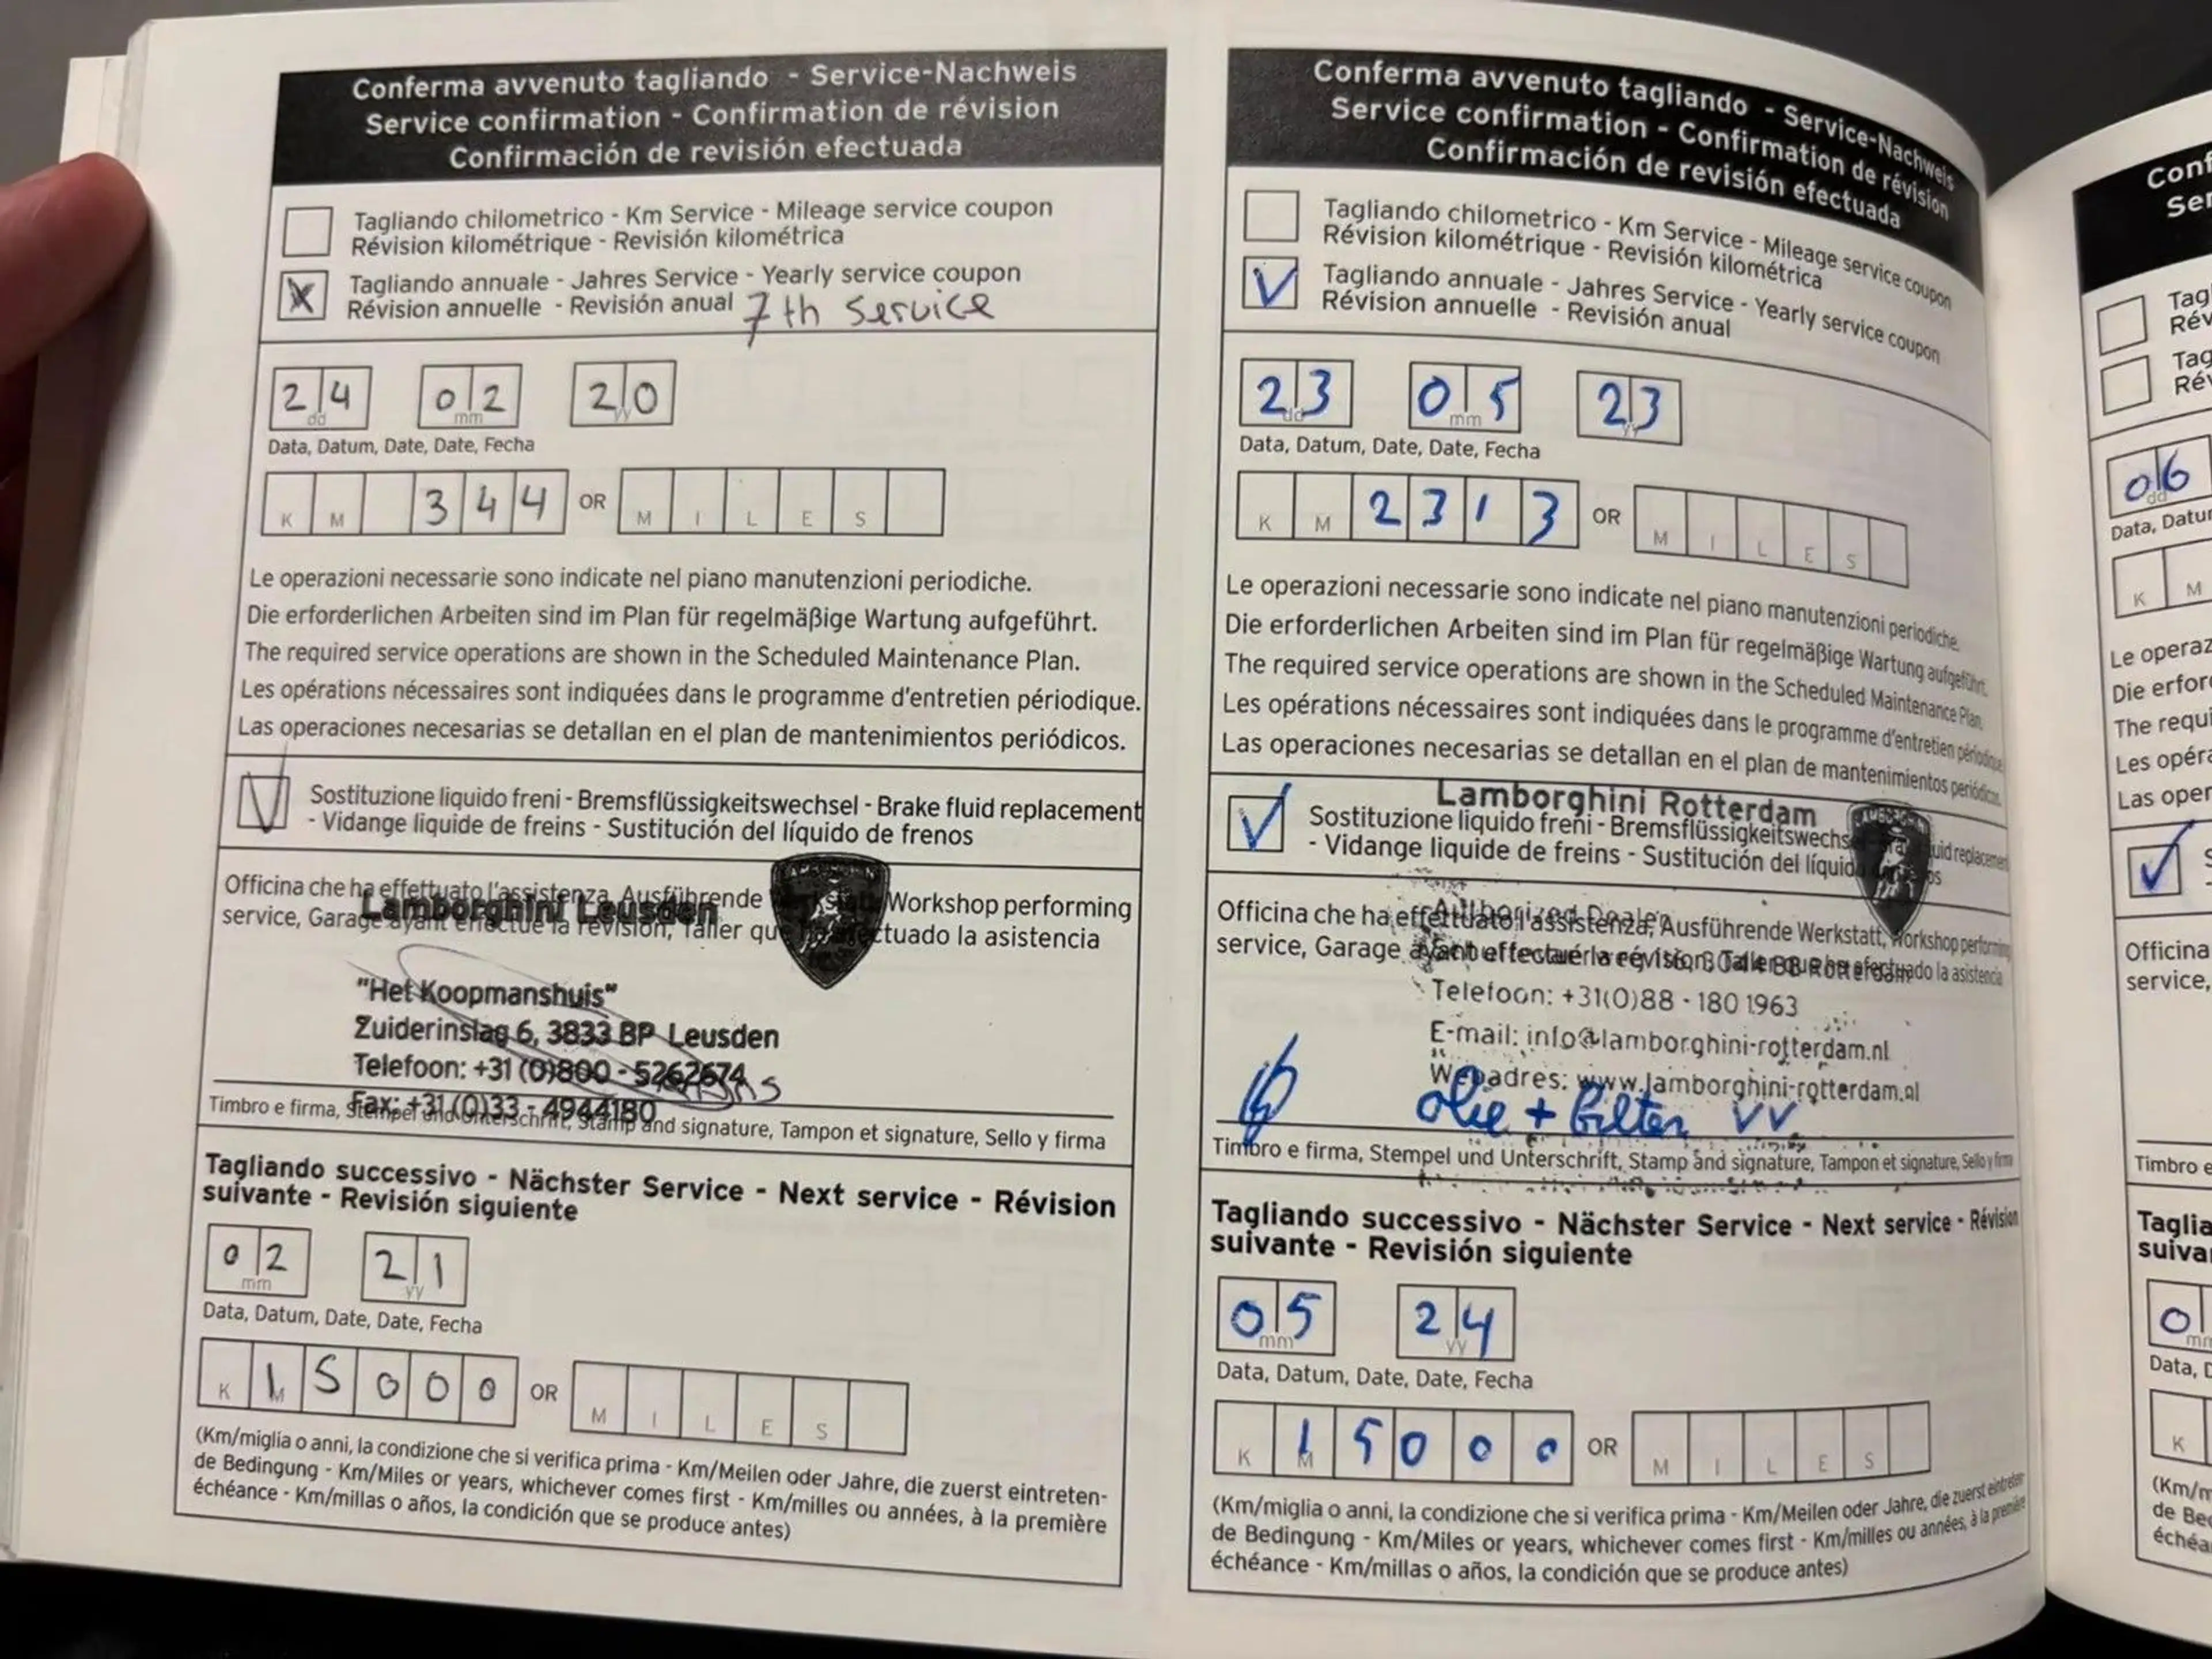 Conferma avvenuto tagliando - Service-Nachweis
Service confirmation - Confirmation de révision
Confirmación de revisión efectuada
Tagliando chilometrico - Km Service - Mileage service coupon
Révision kilométrique - Revisión kilométrica
X Tagliando annuale - Jahres Service - Yearly service coupon
Révision annuelle - Revisión anual 7th Service
24 02 20
dd mm yy
Data, Datum, Date, Date, Fecha
K M 3 4 4 OR M I L E S
Le operazioni necessarie sono indicate nel piano manutenzioni periodiche.
Die erforderlichen Arbeiten sind im Plan für regelmäßige Wartung aufgeführt.
The required service operations are shown in the Scheduled Maintenance Plan.
Les opérations nécessaires sont indiquées dans le programme d'entretien périodique.
Las operaciones necesarias se detallan en el plan de mantenimientos periódicos.
V Sostituzione liquido freni - Bremsflüssigkeitswechsel - Brake fluid replacement
- Vidange liquide de freins - Sustitución del líquido de frenos
Officina che ha effettuato l'assistenza, Ausführende Workshop performing
service, Garage ayant effectué la révision, Taller que ha efectuado la asistencia
Lamborghini Leusden
"Het Koopmanshuis"
Zuiderinslag 6, 3833 BP Leusden
Telefoon: +31 (0)800 - 5262674
Fax: +31 (0)33 - 4944180
Timbro e firma, Stempel und Unterschrift, Stamp and signature, Tampon et signature, Sello y firma
Tagliando successivo - Nächster Service - Next service - Révision
suivante - Revisión siguiente
02 21
mm yy
Data, Datum, Date, Date, Fecha
K M 1 5 0 0 0 OR M I L E S
(Km/miglia o anni, la condizione che si verifica prima - Km/Meilen oder Jahre, die zuerst eintreten-
de Bedingung - Km/Miles or years, whichever comes first - Km/milles ou années, à la première
échéance - Km/millas o años, la condición que se produce antes)
Conferma avvenuto tagliando - Service-Nachweis
Service confirmation - Confirmation de révision
Confirmación de revisión efectuada
Tagliando chilometrico - Km Service - Mileage service coupon
Révision kilométrique - Revisión kilométrica
V Tagliando annuale - Jahres Service - Yearly service coupon
Révision annuelle - Revisión anual
23 05 23
dd mm yy
Data, Datum, Date, Date, Fecha
K M 2 3 1 3 OR M I L E S
Le operazioni necessarie sono indicate nel piano manutenzioni periodiche.
Die erforderlichen Arbeiten sind im Plan für regelmäßige Wartung aufgeführt.
The required service operations are shown in the Scheduled Maintenance Plan.
Les opérations nécessaires sont indiquées dans le programme d'entretien périodique
Las operaciones necesarias se detallan en el plan de mantenimientos periódicos.
Lamborghini Rotterdam
Sostituzione liquido freni - Bremsflüssigkeitswechs fluid replacement
- Vidange liquide de freins - Sustitución del líquido
Authorized Dealer
Officina che ha effettuato l'assistenza, Ausführende Werkstatt, Workshop performing
service, Garage ayant effectué la révision, Taller que ha efectuado la asistencia
Rotterdam
Telefoon: +31(0)88 - 180 1963
E-mail: info@lamborghini-rotterdam.nl
Webadres: www.lamborghini-rotterdam.nl
olie + filter VV
Timbro e firma, Stempel und Unterschrift, Stamp and signature, Tampon et signature, Sello y firma
Tagliando successivo - Nächster Service - Next service - Révision
suivante - Revisión siguiente
05 24
mm yy
Data, Datum, Date, Date, Fecha
K M 1 5 0 0 0 OR M I L E S
(Km/miglia o anni, la condizione che si verifica prima - Km/Meilen oder Jahre, die zuerst eintreten-
de Bedingung - Km/Miles or years, whichever comes first - Km/milles ou années, à la première
échéance - Km/millas o años, la condición que se produce antes)
Conf
Ser
Tag
Rév
Tag
Rév
06
dd
Data, Datur
K M
Le operaz
Die erfor
The requi
Les opér
Las oper
Officina
service,
Timbro e
Taglia
suiva
0
Data, D
K
(Km/m
de Bed
échéa